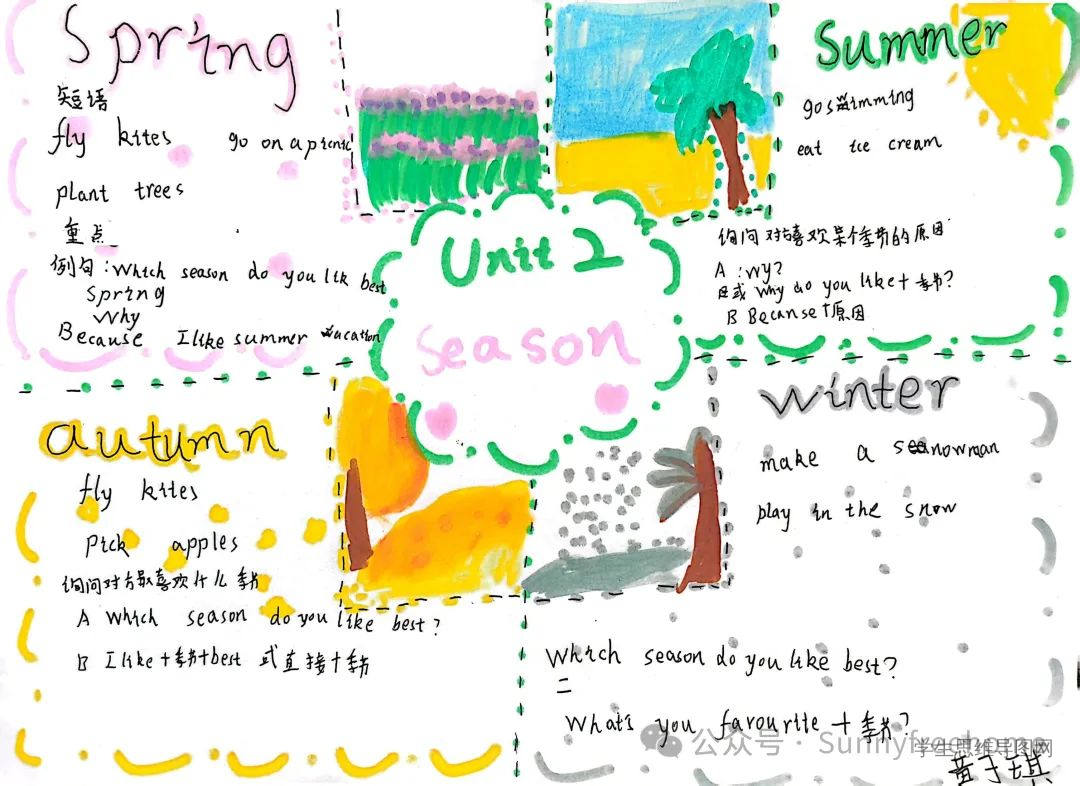 Spring
短语
fly kites go on a picnic
plant trees
重点
例句:Which season do you lik best
Spring
Why
Because I like summer vacation
Summer
go swimming
eat ice cream
询问对方喜欢某个季节的原因
A :Wy?
或 Why do you like+季节?
B Because+原因
Unit 2
Season
autumn
fly kites
Pick apples
询问对方最喜欢什么季节
A Which season do you like best?
B I like+季节+best 或直接+季节
winter
make a snowman
play in the snow
Which season do you like best?
=
What's you favourite+季节?
公众号·Sunnyfreetemp
学生思维导图网
黄子琪